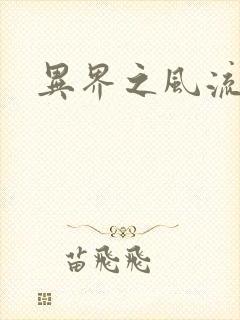 異界之風流
苗飛飛